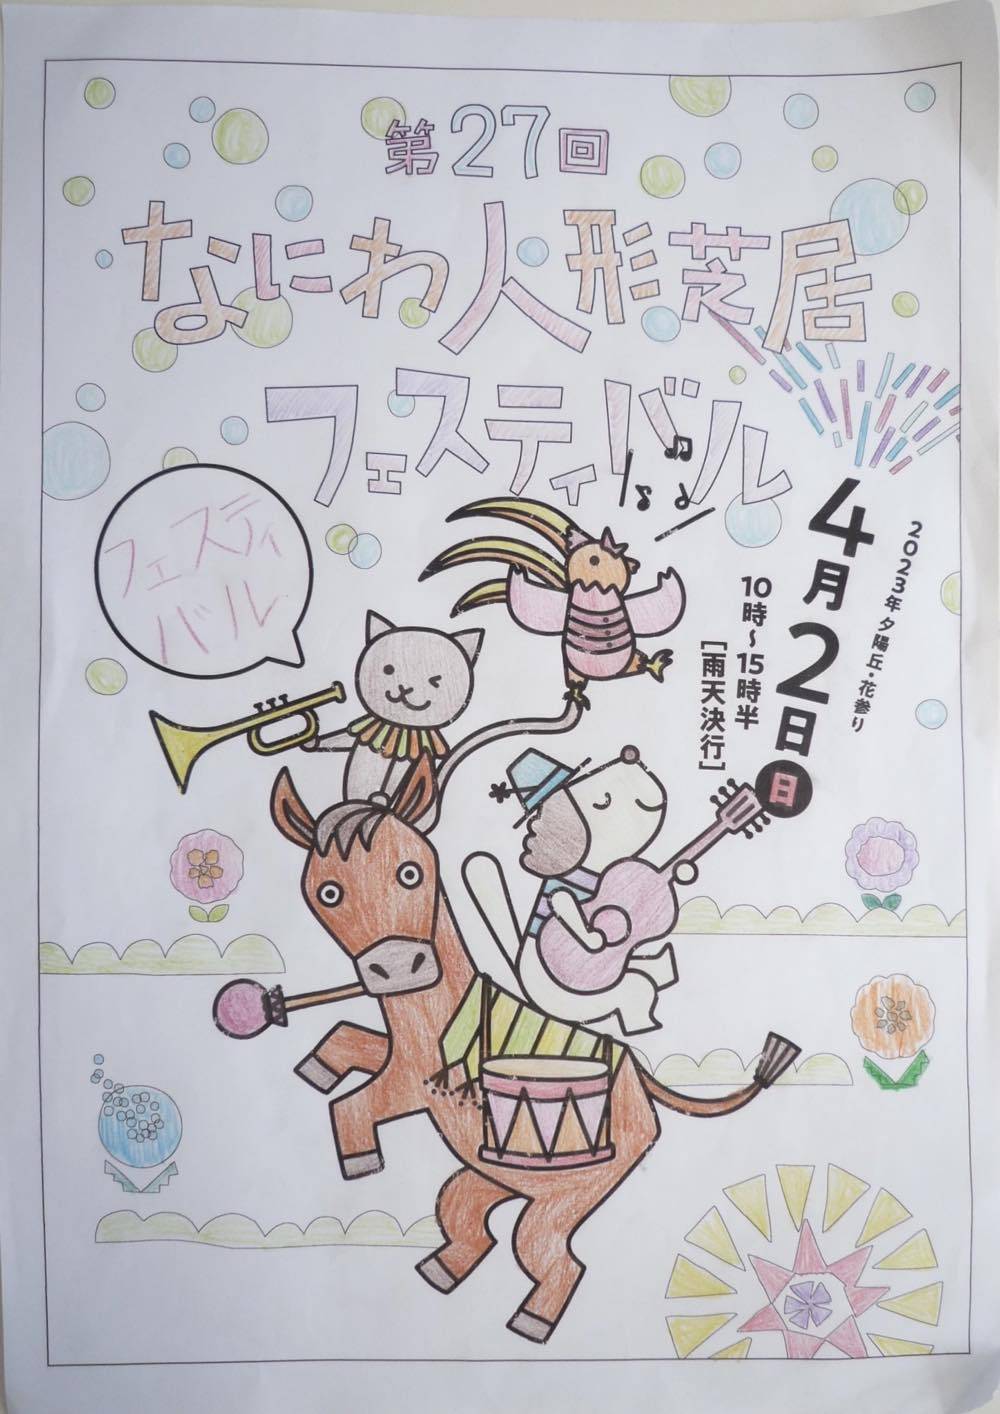 第27回
なにわ人形芝居
フェスティバル
フェスティ
バル
2023年 夕陽丘・花参り
4月2日日
10時〜15時半
[雨天決行]